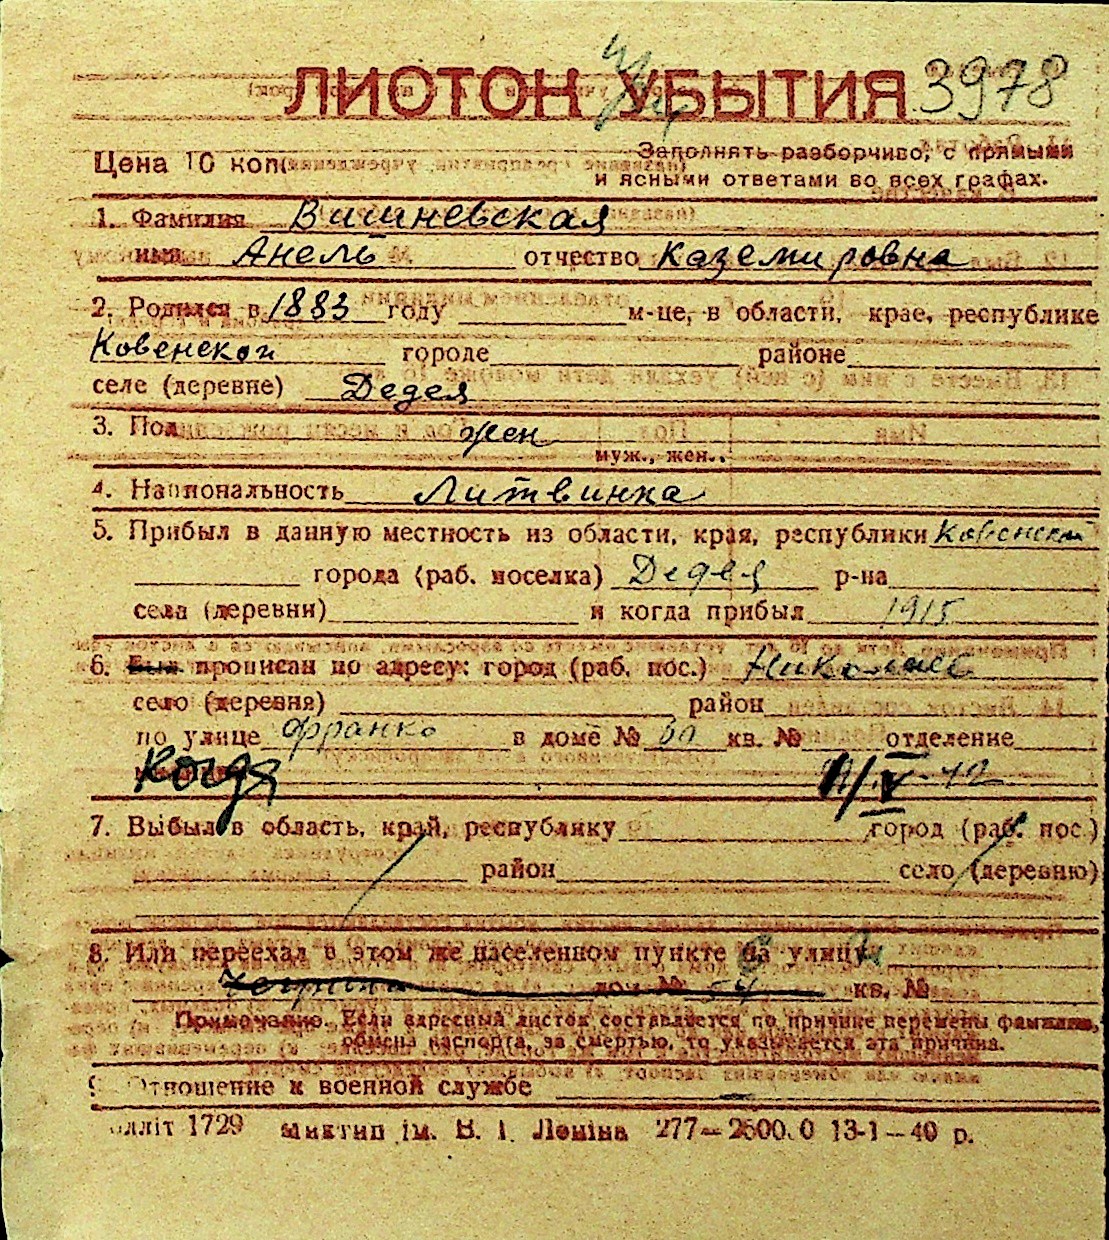 ЛИСТОК УБЫТИЯ 3978
Цена 10 коп.
Заполнять разборчиво, с прямыми
и ясными ответами во всех графах.
1. Фамилия Вишневская
имя Анель отчество Каземировна
2. Родился в 1883 году м-це, в области, крае, республике
Ковенской городе районе
селе (деревне) Дедея
3. Пол жен
муж., жен.
4. Национальность Литвинка
5. Прибыл в данную местность из области, края, республики Ковенской
города (раб. поселка) Дедея р-на
села (деревни) и когда прибыл 1915
6. Был прописан по адресу: город (раб. пос.) Николаев
село (деревня) район
по улице Франко в доме № кв. № отделение
Когда V-42
7. Выбыл в область, край, республику город (раб. пос.)
район село (деревню)
8. Или переехал в этом же населенном пункте на улицу
дом № 54 кв. №
Примечание. Если адресный листок составляется по причине перемены фамилии,
обмена паспорта, за смертью, то указывается эта причина.
9. Отношение к военной службе
літ 1729 ім. В. І. Леніна 277—2500.0 13-1—40 р.